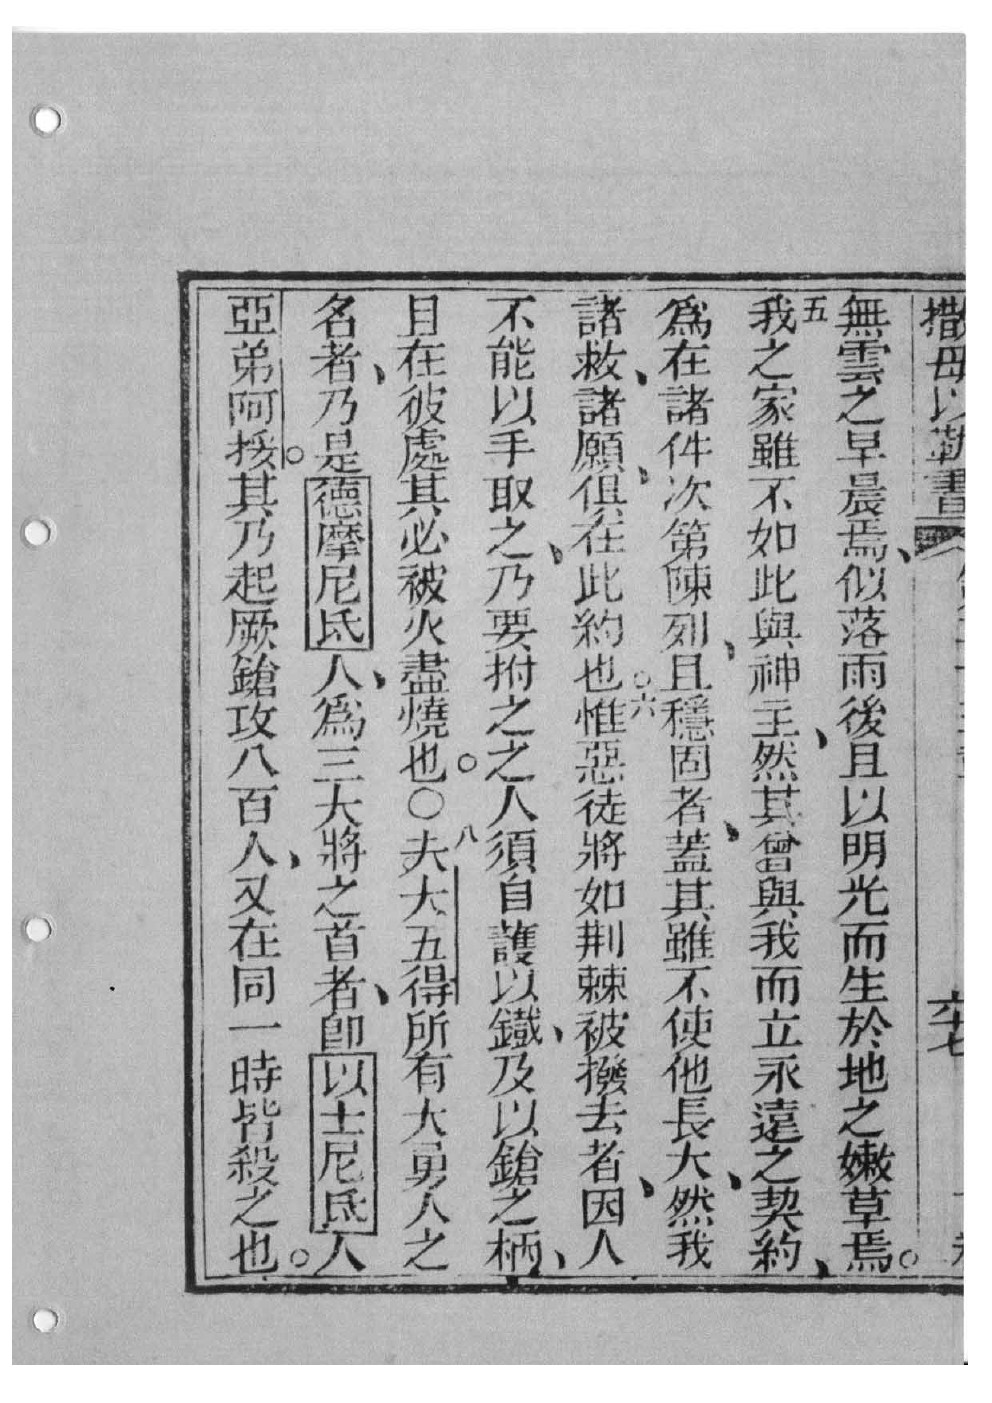 撒母以勒書
六十七
無雲之早晨焉、似落雨後且以明光而生於地之嫩草焉。
五我之家雖不如此與神主、然其曾與我而立永遠之契約、
爲在諸件次第陳列、且穩固者、蓋其雖不使他長大、然我
諸救、諸願、俱在此約也。六惟惡徒將如荆棘被撥去者、因人
不能以手取之、乃要拊之之人須自護以鐵、及以鎗之柄、
且在彼處其必被火盡燒也。○八夫大五得所有大勇人之
名者、乃是德摩尼氏人、爲三大將之首者、卽以士尼氏人
亞弟阿挼。其乃起厥鎗攻八百人、又在同一時皆殺之也。